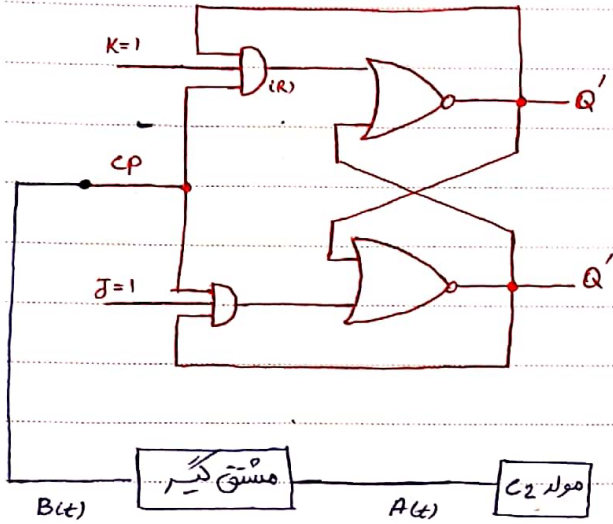 K=1
(R)
Q'
CP
J=1
Q'
مشتق گیر
مولد C2
B(t)
A(t)